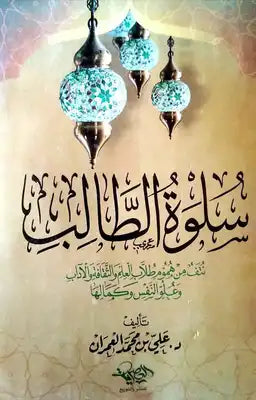 سُلْوَةُ الطَّالِبِ
نُتَفٌ مِن هُمُومِ طُلَّابِ العِلمِ وَالثَّقَافَةِ وَالآدَابِ
وَعُلُوِّ النَّفْسِ وَكَمَالِهَا
تأليف
د. علي بن محمد العمران
للنشر والتوزيع